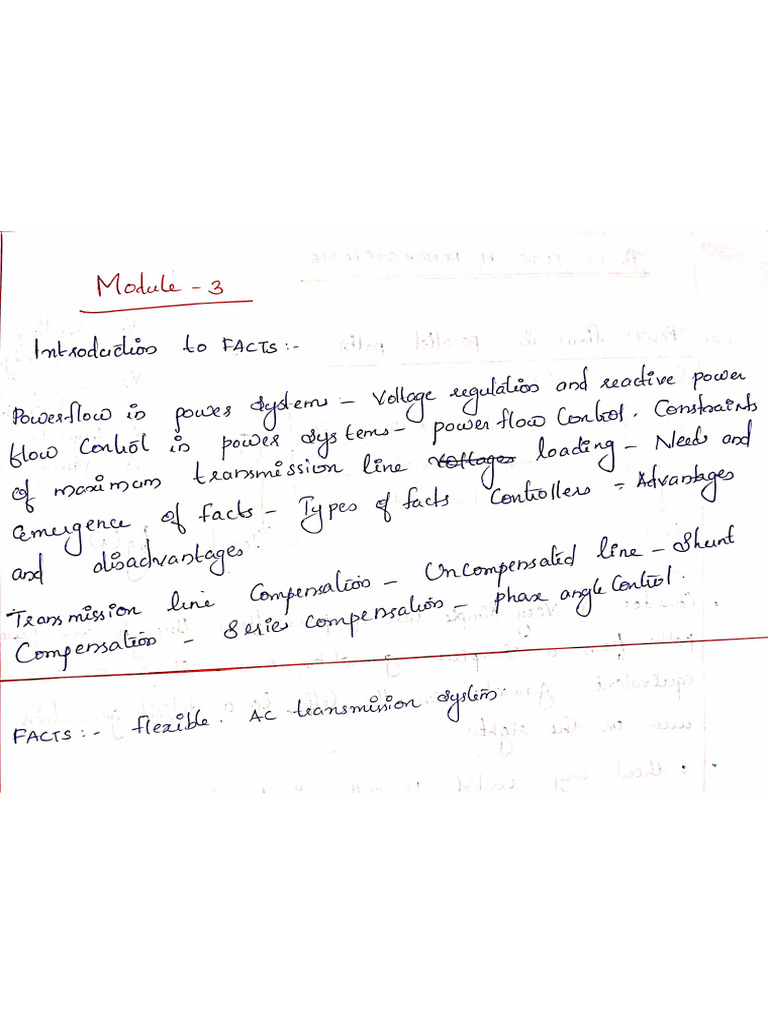 Module - 3
Introduction to FACTS :-
Powerflow in power systems - Voltage regulation and reactive power
flow Control in power systems - power flow Control. Constraints
of maximum transmission line voltages loading - Needs and
emergence of facts - Types of facts Controllers - Advantages
and disadvantages.
Transmission line Compensation - Uncompensated line - Shunt
Compensation - Series compensation - phase angle Control.
FACTS :- flexible. AC transmission system.